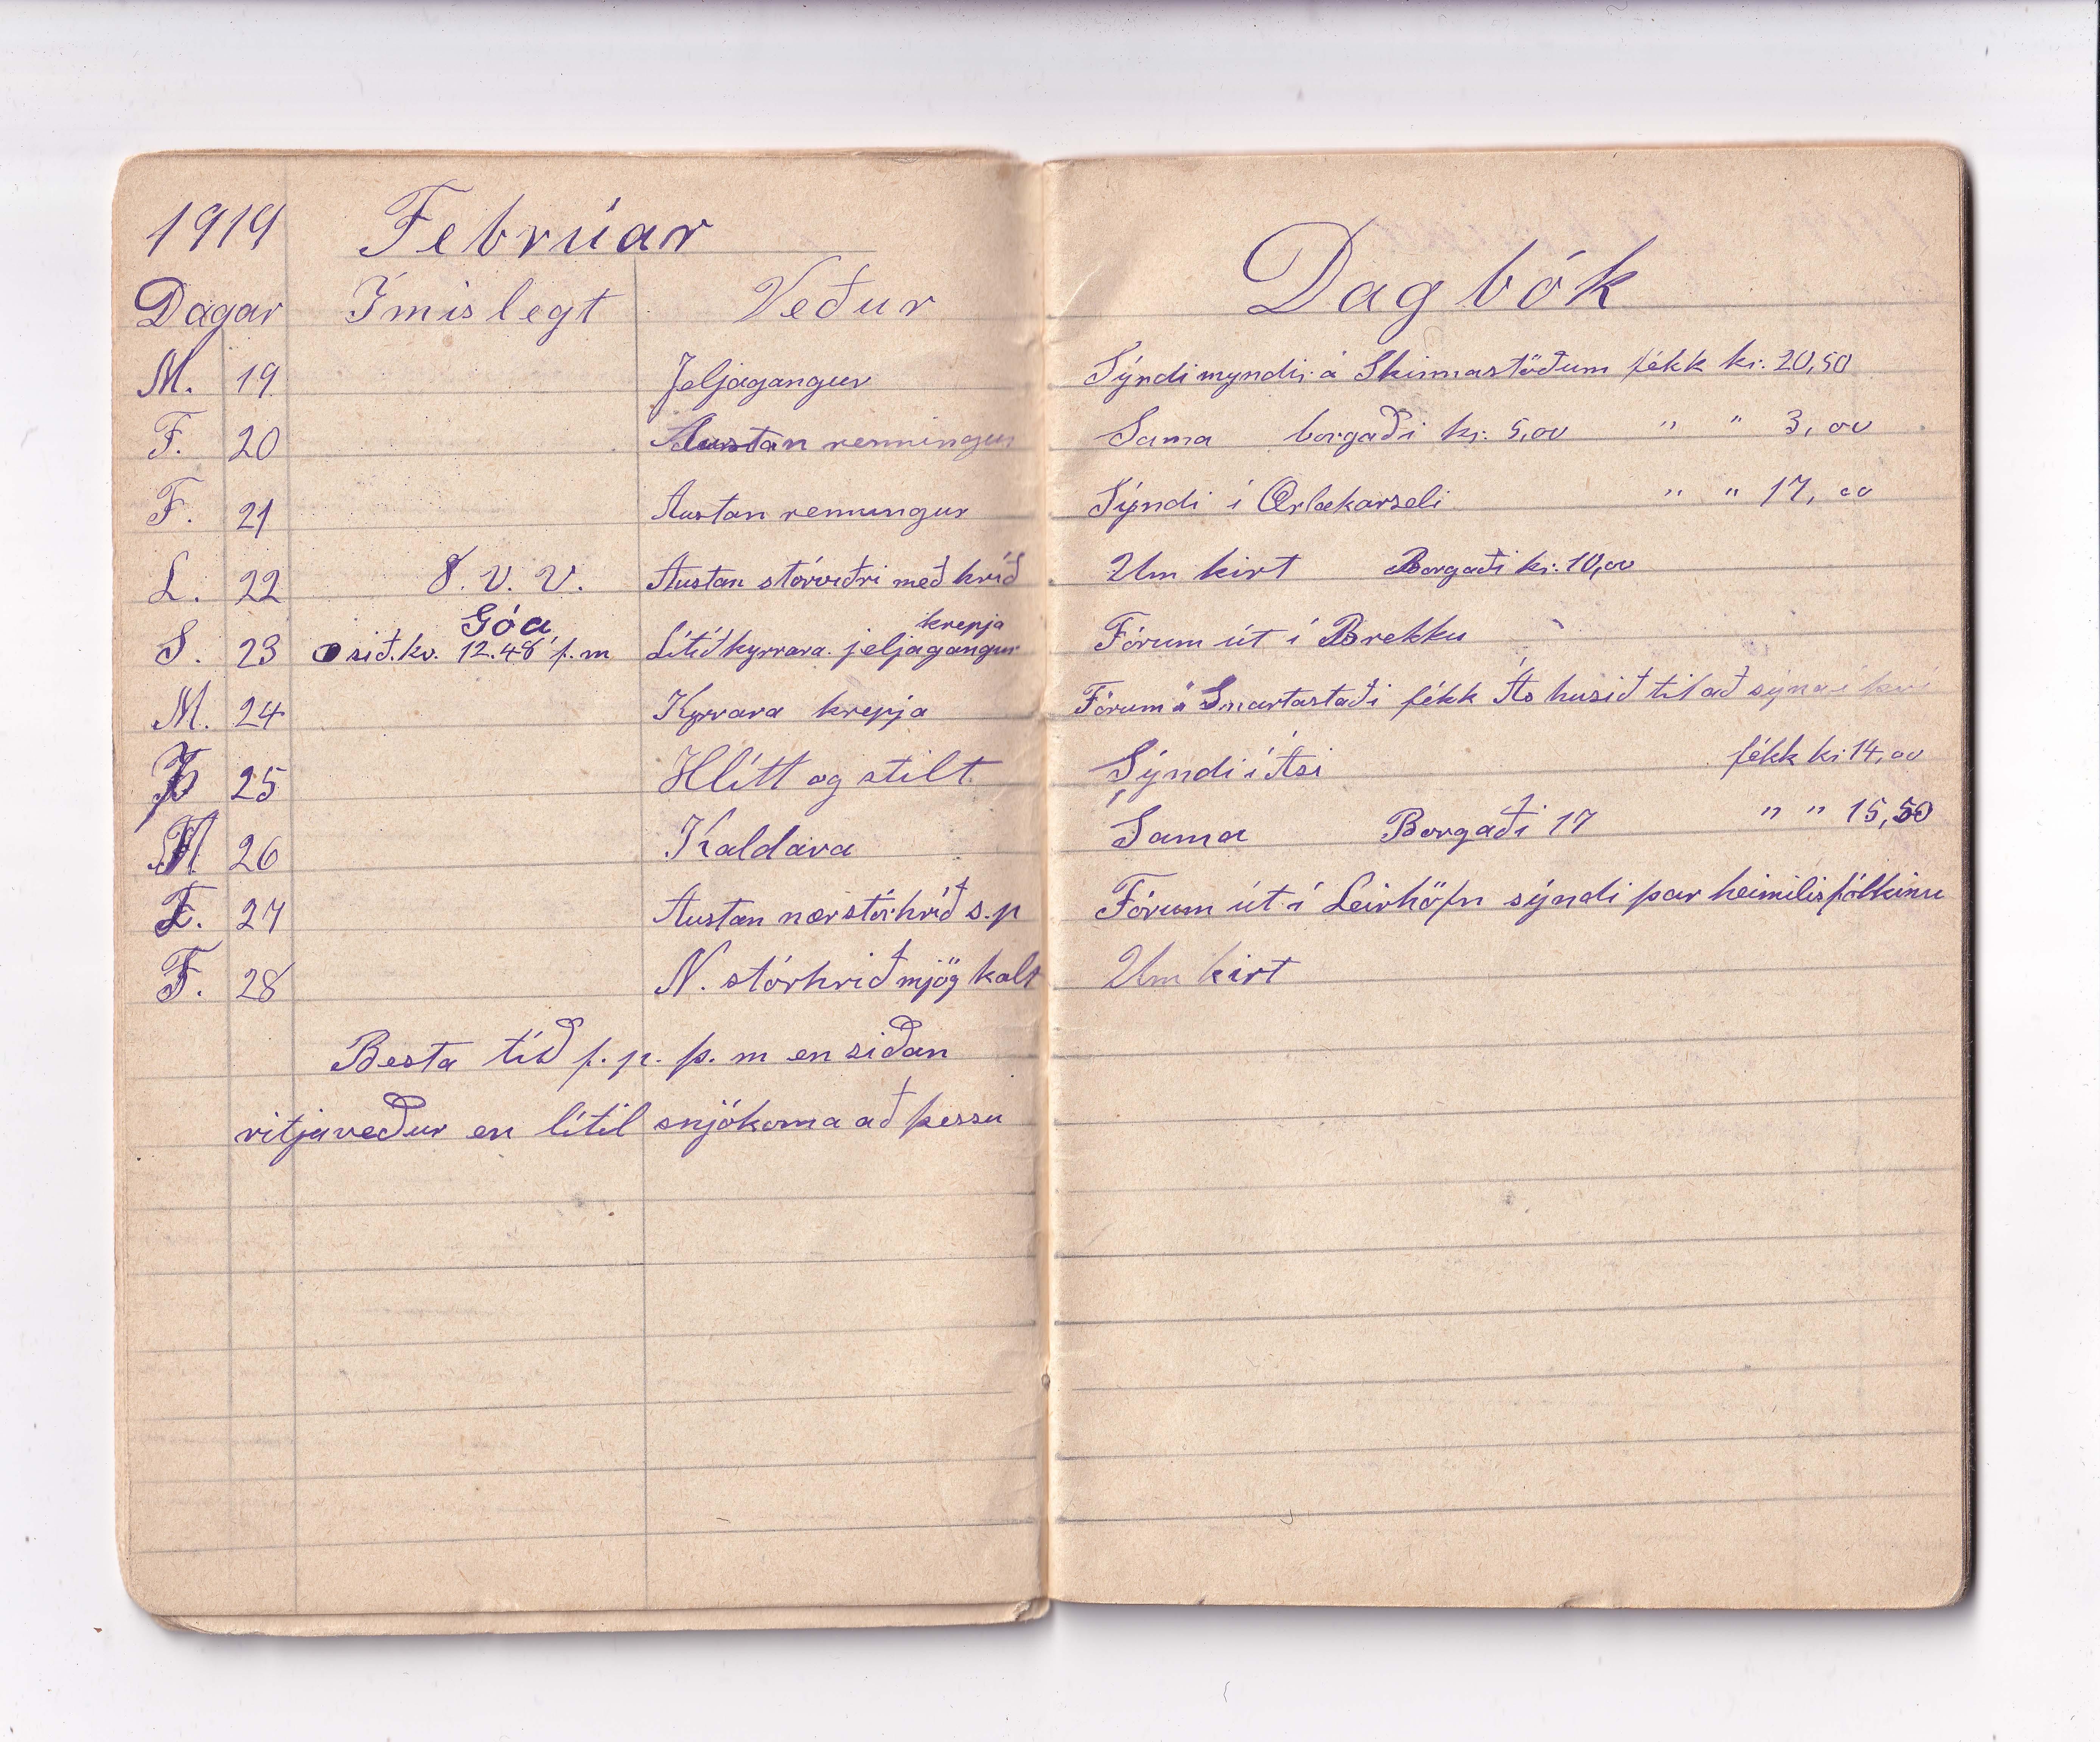 1919 Febrúar
Dagar Ímislegt Veður
M. 19 Jeljagangur
F. 20 Austan renningur
F. 21 Austan renningur
L. 22 8. V. V. Austan stórviðri með hríð
Góa krepja
S. 23 sið.kv. 12.48 f.m Lítið kyrrara jeljagangur
M. 24 Kyrrara krepja
Þ 25 Hlítt og stilt.
M. 26 Kaldara
F. 27 Austan nær stórhríð s.p
F. 28 N. stórhrið mjög kalt
Besta tíð f. p. þ. m en siðan
vitjaveður en lítil snjókoma að þessu
Dagbók
Sýndi myndir á Skinnastöðum fékk kr. 20,50
Sama borgaði kr. 5,00 " " 3,00
Sýndi í Ærlækarseli " " 17,00
Um kirt Borgaði kr. 10,00
Fórum út í Brekku
Fórum á Snartastaði fékk Ás husið til að sýna í
Sýndi í Ási fékk kr 14,00
Sama Borgaði 17 " " 15,50
Fórum út í Leirhöfn sýndi þar heimilisfólkinu
Um kirt